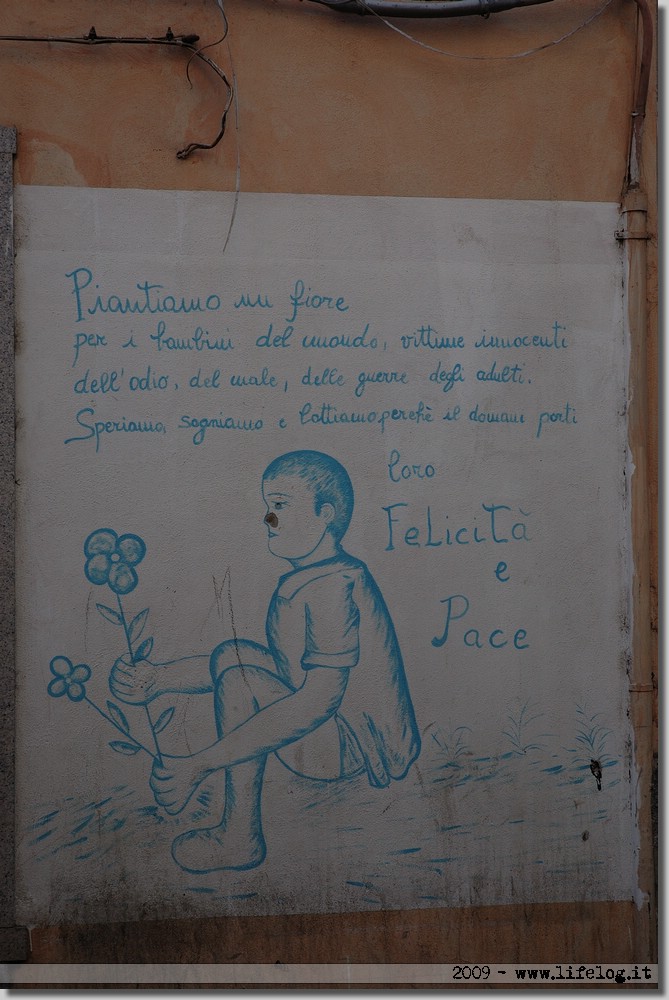 Piantiamo un fiore
per i bambini del mondo, vittime innocenti
dell'odio, del male, delle guerre degli adulti.
Speriamo, sogniamo e lottiamo, perchè il domani porti
loro
FeLiciTà
e
Pace
2009 - www.lifelog.it